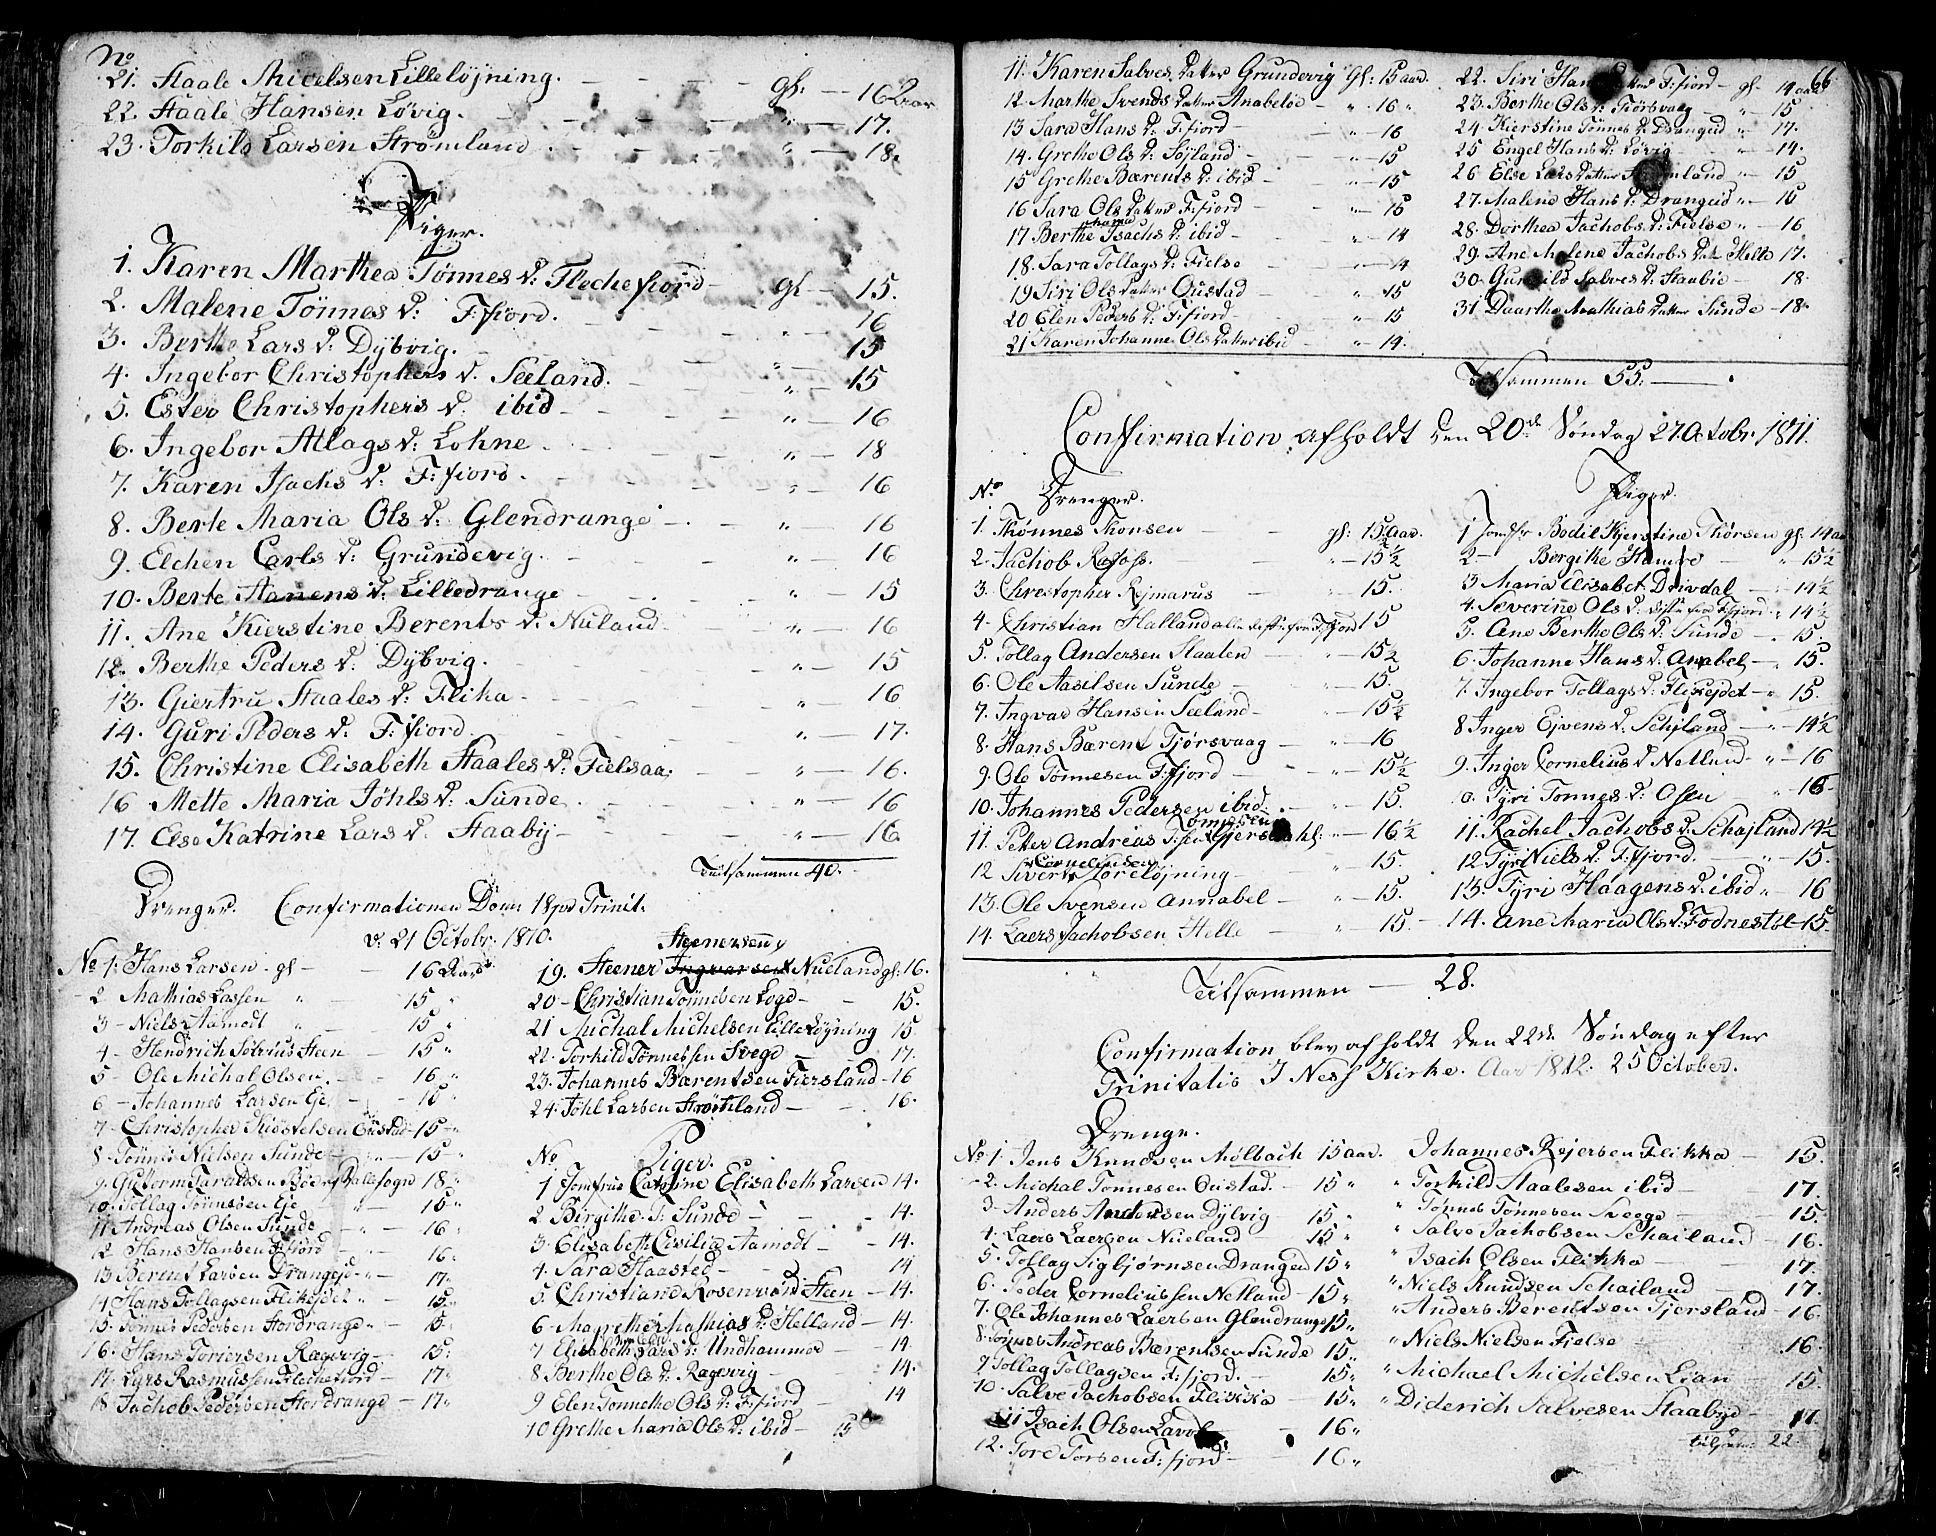 No
21. Staale Micelsen Lilleløjning. gl: — 16 Aar
22. Staale Hansen Løvig. — 17.
23. Torkild Larsen Strømland „ — 18.
Piger.
1. Karen Marthea Tønnes d: Flechefiord gl — 15.
2. Malene Tönnes d: F:fiord. „ — 16
3. Berthe Lars d: Dÿbvig. 15
4. Ingebor Christophers d. Seeland. „ — 15
5. Ester Christophers d. ibid „ — 16
6. Ingebor Atlags d: Lohne „ — 18
7. Karen Isachs d: F:fiord. „ — 16
8. Berte Maria Ols d: Glendrange „ — 16
9. Elchen Carls d: Grundevig. „ — 16
10. Berte Hanens d: Lilledrange „ — 15
11. Ane Kierstine Berents d. Nuland „ — 16
12. Berthe Peders d: Dÿbvig. „ — 15
13. Giertru Staales d: Flika „ — 16
14. Guri Peders d: F:fiord „ — 17.
15. Christine Elisabeth Staales d: Fielsaa „ — 16.
16 Mette Maria Jöhls d: Sunde „ — 16
17. Else Katrine Lars d. Staabÿ „ — 16
Tilsammen 40.
Drenger. Confirmationen Dom 18 p Trinit.
d. 21 Octobr. 1810.
No 1. Hans Larsen gl — 16 Aar
2 Mathias Lassen „ 15 „
3 – Niels Aamodt „ 15 „
4 – Hendrich Steen — 15 „
5 – Ole Michal Olsen. 16 „
6 – Johannes Larsen Ege 15 „
7 – Christopher Kiøstelsen Oustad – 15 „
8 Tönnes Nielsen Sunde – 15 „
9. Guttorm Taraldsen Ballesogn 18 „
10. Tollag Tønnesen Ege „ 15 „
11 Andreas Olsen Sunde „ 16 „
12 Hans Hansen F:fiord — 16 „
13 Berent Larsen Drangejd „ – 17 „
14 Hans Tollagsen Flikejdet „ 15 „
15. Tönnes Pedersen Stordrange „ 15 „
16. Hans Toriersen Rægevig — 15 „
17. Lars Rasmussen Flechefiord — 17 „
18 Jachob Pedersen Stordrange — 17 „
Steenersen
19. Steener Ingvarsen Nueland gl: 16.
20 – Christian Tönnesen Loge — 15.
21 Michal Michelsen Lille Løgning 15
22. Torkild Tönnessen Svege — 17.
23. Johannes Bærentsen Fiersland – 16
24. Jöhl Larsen Strömland — 16.
No Piger.
1 Jomfrue Catrine Elisabeth Larsen 14.
2 Birgithe T: Sunde — 14.
3. Elisabeth Civilia Aamodt — 14.
4. Sara Haasted — 14
5 Christiane Rosenvold Steen — 14.
6 Magrethe Mathias d: Helland — 14.
7 Elisabeth Lars d: Undhammer — 14
8 Berthe Ols d: Ragevig — 14.
9 Elen Tonnethe Ols d: F:fiord — 14
10 Grethe Maria Ols d: ibid — 15
11. Karen Salves Datter Grundevig gl: 15 aar.
12 Marthe Svends Datter Anabeløe „ 16 „
13 Sara Hans d: F:fiord — „ 16
14. Grethe Ols d: Föjland „ 15
15 Grethe Bærents d: ibid — „ 15
16 Sara Ols Datter F:fiord — 15
Maria
17 Berthe Isachs d: ibid — „ 14
18. Sara Tollags d: Fielse „ 14
19 Siri Ols Datter Oustad „ 15
20 Elen Peders d: F:fiord — „ 15
21 Karen Johanne Ols Datter ibid — „ 14.
66
22. Siri Hans Datter F:fiord – gl – 14 aar
23. Berthe Ols d: Tiörsvaag — 15
24 Kierstine Tönnes d: Drangeid „ 14.
25 Engel Hans d: Løvig „ 14.
26 Else Lars Datter Strömland „ 15
27. Malene Hans d: Drangeid „ 15
28. Dorthea Jachobs d: Fielse „ 16
29. Ane Malene Jachobs Dat Helle 17.
30 Gunhild Salves d: Staabie — 18
31 Daarthe Mathias Datter Sunde – 18.
Tilsammen 55. —
Confirmation afholdt den 20de Søndag 27. Octobr. 1811.
No Drenger.
1. Thønnes Thonsen gl: 15 aar.
2. Jachob Rafoss. „ — 15½
3. Christopher Rejmarus „ 15.
4. Christian Halland 15
5. Tollag Andersen Staalen 15½
6. Ole Aasilsen Sunde — 15.
7. Ingvar Hansen Seeland — „ 15½
8. Hans Bærent Tjørsvaag — „ 16
9. Ole Tønnesen F:fjord — „ 15½
10. Johannes Pedersen ibid. „ 15.
11. Peter Andreas 16½
Cornelinsen
12 Sivert Storeløjning — „ 15.
13. Ole Svensen Annabel — „ 15.
14. Laers Jachobsen Helle — „ 15.
Piger.
1 Jomfr Bodil Kjerstine Thørsen gl. 14 aar
2 — Bergithe „ 15½
3 Maria Elisabet Drivdal „ 14½
4. Severine Ols d. F:fjord „ 14½
5. Ane Berthe Ols d: Sunde „ 15.
6. Johanne Hans d: Anabel – „ 15.
7. Ingebor Tollags d: Flikejdet – „ 15.
8 Inger Ejvens d: Schjland — „ 14½
9. Inger Cornelius d Netland „ 16
0. Tyri Tonnes d: Osen — „ 16
11. Rachel Jachobs d. Schajland 14½
12 Tyri Niels d: F:fjord. — „ 15.
13. Tyri Haagens d: ibid „ 16
14. Ane Maria Ols d: Fodnestöl – 15.
Tilsammen — 28.
Confirmation blev afholdt den 22de Søndag efter
Trinitatis I Ness Kirke. Aar 1812. 25 October.
Drenge.
No 1 Jens Knudsen Mølbach 15 aar.
2. Michal Tonnesen Oustad. — 15 „
3. Anders Andersen Dÿbvig 15 „
4. Laers Laersen Nueland 15 „
5. Tollag Sigbjørnsen Drangeid 15 „
6. Peder Corneliussen Netland – 15 „
7. Ole Johannes Laersen Glendrange 15 „
8. Tønnes Andreas Bærentsen Sunde 15 „
9 Tollag Tollagsen F:fjord. — 15 „
10. Salve Jachobsen Flikka — 15 „
11 Isach Olsen 16 „
12. Tore Torsen F:fjord — 16 „
Johannes Rejersen Flikka — 15.
„ Torkild Staalesen ibid — 17.
„ Tønnes Tønnesen Svege — 15.
„ Salve Jachobsen Schailand — 16.
„ Isach Olsen Flikka — 17.
„ Niels Knudsen Schailand — 17.
„ Anders Berentsen Tjersland – 16.
„ Niels Nielsen Fielse — 16.
„ Michael Michelsen Lian — 15.
„ Diderich Salvesen Staabye — 17.
22.